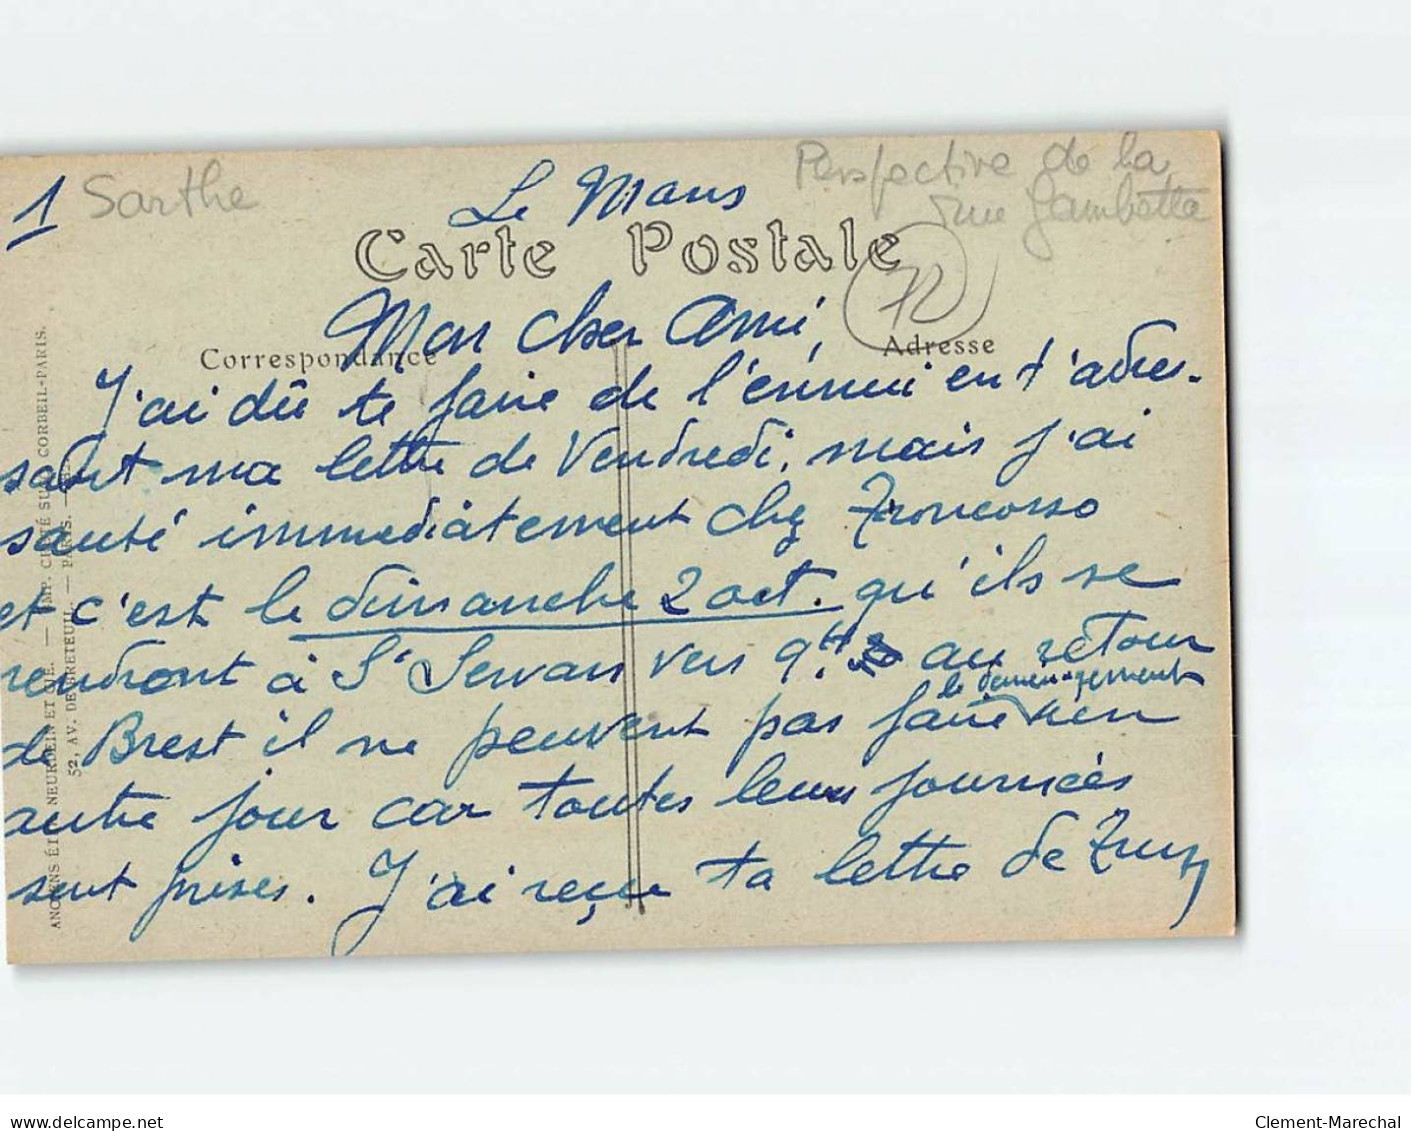 1 Sarthe
Le Mans
Perspective de la
rue Gambetta
72
Carte Postale
Correspondance
Adresse
Mon cher Ami,
J'ai dû te faire de l'ennui en t'adres-
sant ma lettre de Vendredi, mais j'ai
sauté immédiatement chez Troncosso
et c'est le dimanche 2 oct. qu'ils se
rendront à St Servan vers 9H. au retour
le déménagement
de Brest il ne peuvent pas faire rien
autre jour car toutes leurs journées
sont prises. J'ai reçu ta lettre de
ANCIENS ÉT. NEURDEIN ET CIE. — IMP. CRÉTÉ SUCC. CORBEIL-PARIS.
52, AV. DE BRETEUIL. — PARIS.
delcampe.net
Clement-Marechal